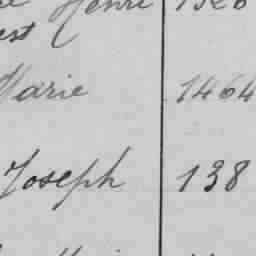 Henri
est
Marie 1464
Joseph 138